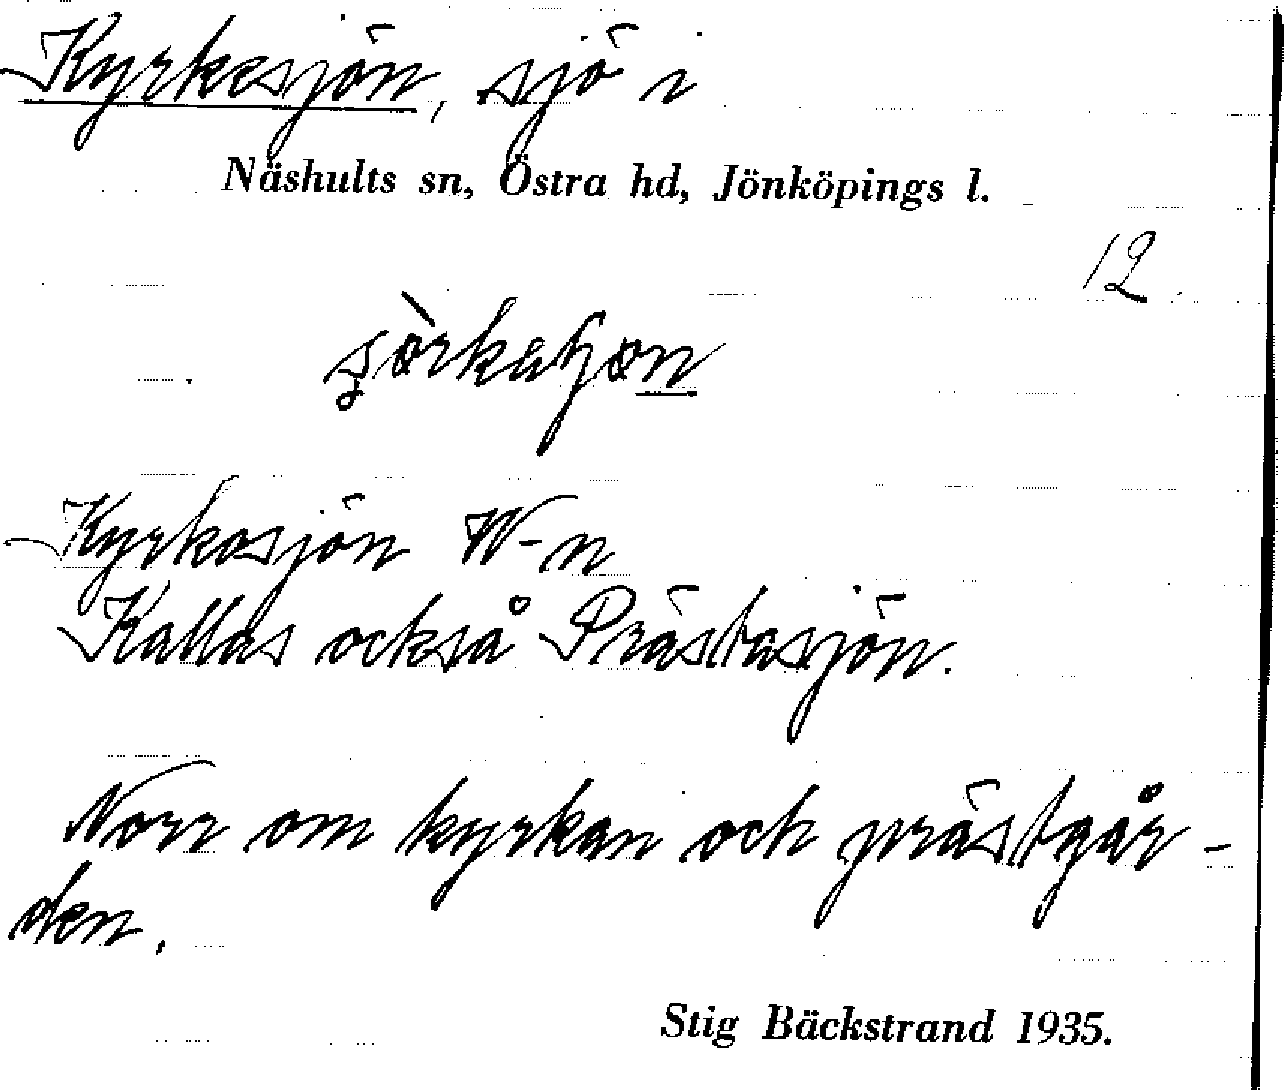 Kyrkesjön, sjö i
Näshults sn, Östra hd, Jönköpings l.
12
Kyrkosjön W-n
Kallas också Prästasjön.
Norr om kyrkan och prästgår-
den.
Stig Bäckstrand 1935.